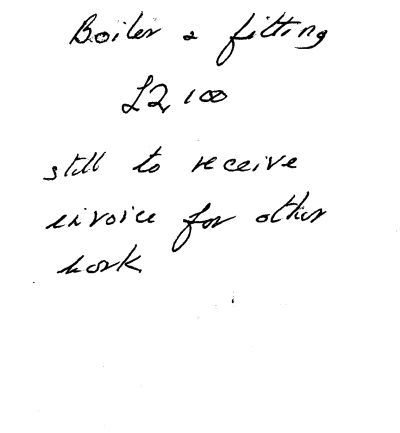 Boiler & fitting
£2,100
still to receive
invoice for other
work